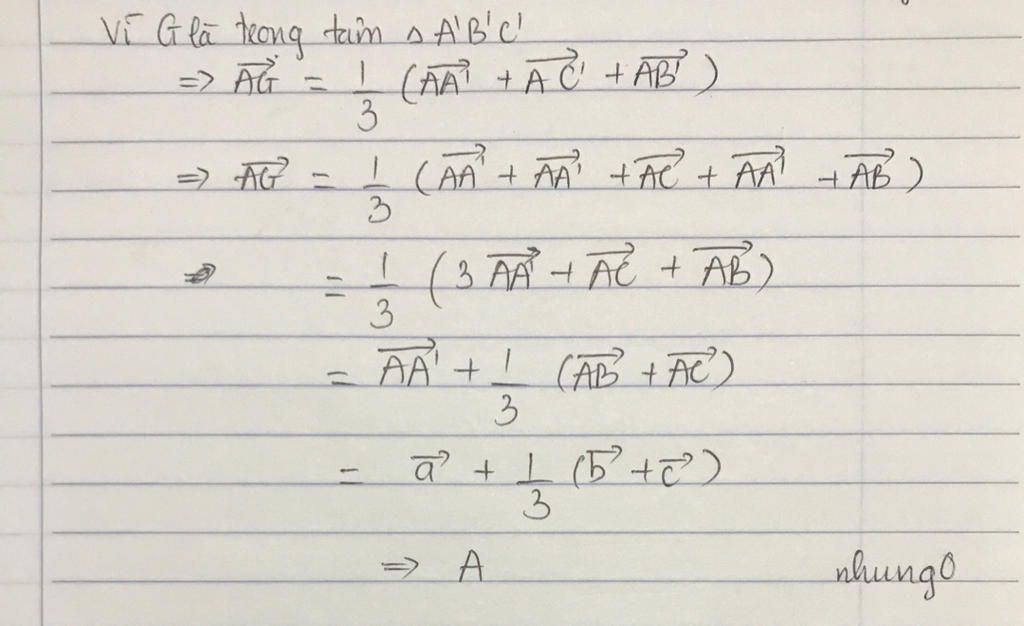 Vì G là trọng tâm △ A'B'C'
=> \overrightarrow{AG} = \frac{1}{3} (\overrightarrow{AA'} + \overrightarrow{AC'} + \overrightarrow{AB'})
=> \overrightarrow{AG} = \frac{1}{3} (\overrightarrow{AA'} + \overrightarrow{AA'} + \overrightarrow{AC} + \overrightarrow{AA'} + \overrightarrow{AB})
= \frac{1}{3} (3 \overrightarrow{AA'} + \overrightarrow{AC} + \overrightarrow{AB})
= \overrightarrow{AA'} + \frac{1}{3} (\overrightarrow{AB} + \overrightarrow{AC})
= \overrightarrow{a} + \frac{1}{3} (\overrightarrow{b} + \overrightarrow{c})
=> A nhung0